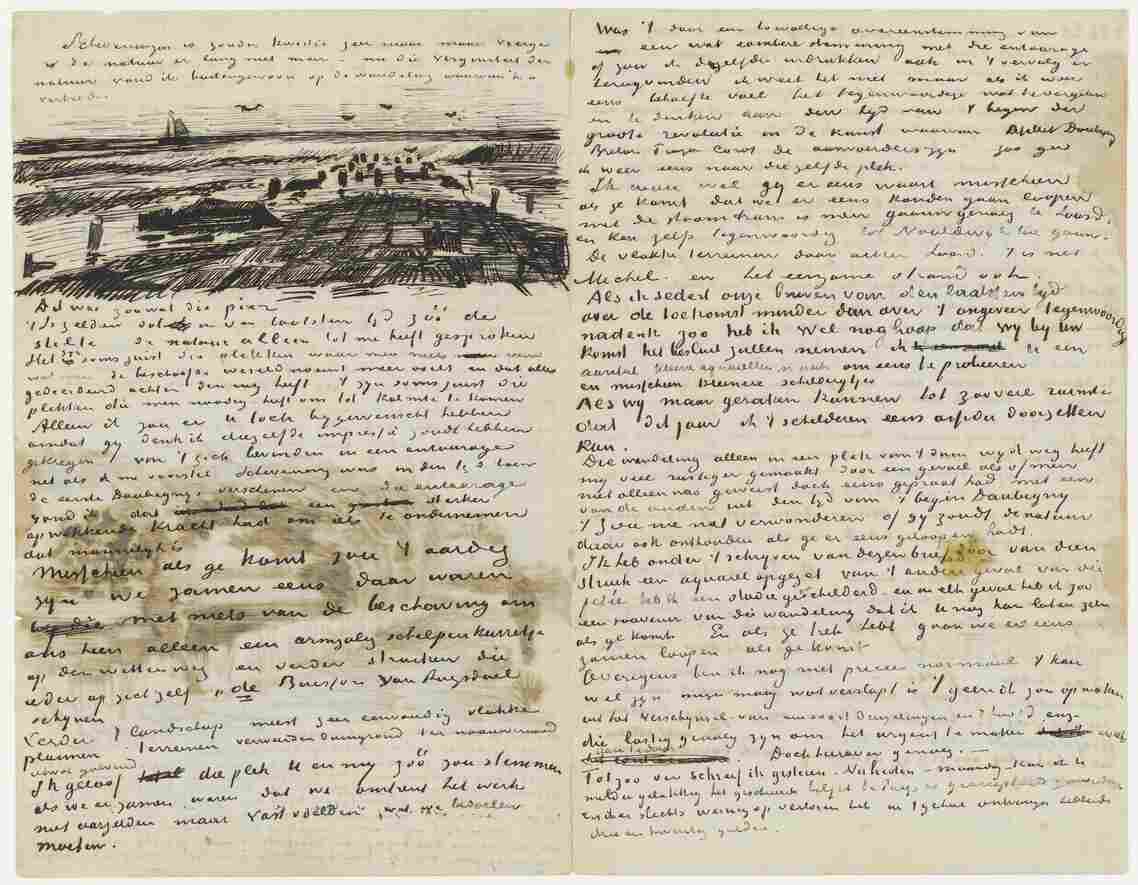 Scheveningen is zonder kwestie zeer mooi maar vroege
is de natuur er lang niet meer – nu die vergulsel der
natuur vond ik buitengewoon op de wandeling waarvan ik u
vertelde.
Dit was zoowat die pier
't Is zelden dat in van laatsten tijd zóó de
stilte de natuur alleen tot me heeft gesproken
Het is soms juist die plekken waar men niets meer van
wat men de beschaafde wereld noemt meer voelt en dat alles
gedecideerd achter den rug heeft 't zijn soms juist die
plekken die men noodig heeft om tot kalmte te komen
Alleen ik zou er u toch bij gewenscht hebben
omdat gij denk ik diezelfde impressie zoudt hebben
gekregen van 't zich bevinden in een entourage
net als ik me voorstel Scheveningen was in den tijd toen
de eerste Daubigny's verschenen en die entourage
vond ik dat een sterker
opwekkende kracht had om iets te ondernemen
dat mannelijk is
Misschien als ge komt zou 't aardig
zijn we zamen eens daar waren
met niets van de beschaving om
ons heen alleen een armzalig schelpenkarretje
op den witten weg en verder struiken die
ieder op zich zelf „de Buisson van Ruysdael
schijnen
Verder 't landschap meest zeer eenvoudig vlakke
plannen terreinen verweerden duingrond ter nauwernood
gegolfd
Ik geloof die plek u en mij zóó zou stemmen
als we er zamen waren dat we omtrent het werk
niet aarzelden maar vast voelden wat we bedoelen
moeten.
Was 't door een toevallige overeenstemming van
een wat sombere stemming met die entourage
of zou ik dezelfde indrukken ook in 't vervolg er
terugvinden ik weet het niet maar als ik weer
eens behoefte voel het tegenwoordige wat te vergeten
en te denken aan den tijd van 't begin der
groote revolutie in de kunst waarvan Millet Daubigny
Breton Troyon Corot de aanvoerders zijn zoo ga
ik weer eens naar diezelfde plek.
Ik wou wel gij er eens waart misschien
als ge komt dat we er eens konden gaan loopen
met de stoomtram is men gauw genoeg te Loosd.
en kan zelfs tegenwoordig tot Naaldwijk toe gaan.
De vlakke terreinen daar achter Loosd. 't is net
Michel. en het eenzame strand ook.
Als ik sedert onze brieven van den laatsten tijd
over de toekomst minder dan over 't ongeveer tegenwoordig
nadenk zoo heb ik wel nog hoop dat wij bij uw
komst het besluit zullen nemen ik u een
aantal kleine aquarellen om eens te proberen
en misschien kleinere schilderijtjes
Als wij maar geraken kunnen tot zooveel ruimte
dat dit jaar ik 't schilderen eens ferm doorzetten
kan.
Die wandeling alleen in een plek van 't duin wijd weg heeft
mij veel rustiger gemaakt door een gevoel als of men
niet alleen was geweest doch eens gepraat had met een
van de ouden uit den tijd van 't begin Daubigny
't zou me niet verwonderen of gij zoudt de natuur
daar ook onthouden als ge er eens geloopen hadt.
Ik heb onder 't schrijven van dezen brief door van dien
struik een aquarel opgezet van 't andere geval van die
petie heb ik een studie geschilderd en in elk geval heb ik zoo
een souvenir van die wandeling dat ik u nog kan laten zien
als ge komt. En als ge trek hebt gaan we er eens
zamen loopen als ge komt
Overigens ben ik nog niet precies normaal 't kan
wel zijn mijn maag wat verslapt is 't geen ik zou opmaken
uit het verschijnsel van en soort duizelingen en hoofd enz.
die lastig genoeg zijn om het urgent te maken
Doch hierover genoeg. –
Tot zoo ver schreef ik gisteren. Nu heden – maandag – kan ik u
melden gelukkig het geschiedt
en dus slechts weinig op verloren het in 't geheel ontvangen hebbende
drie en twintig gulden.